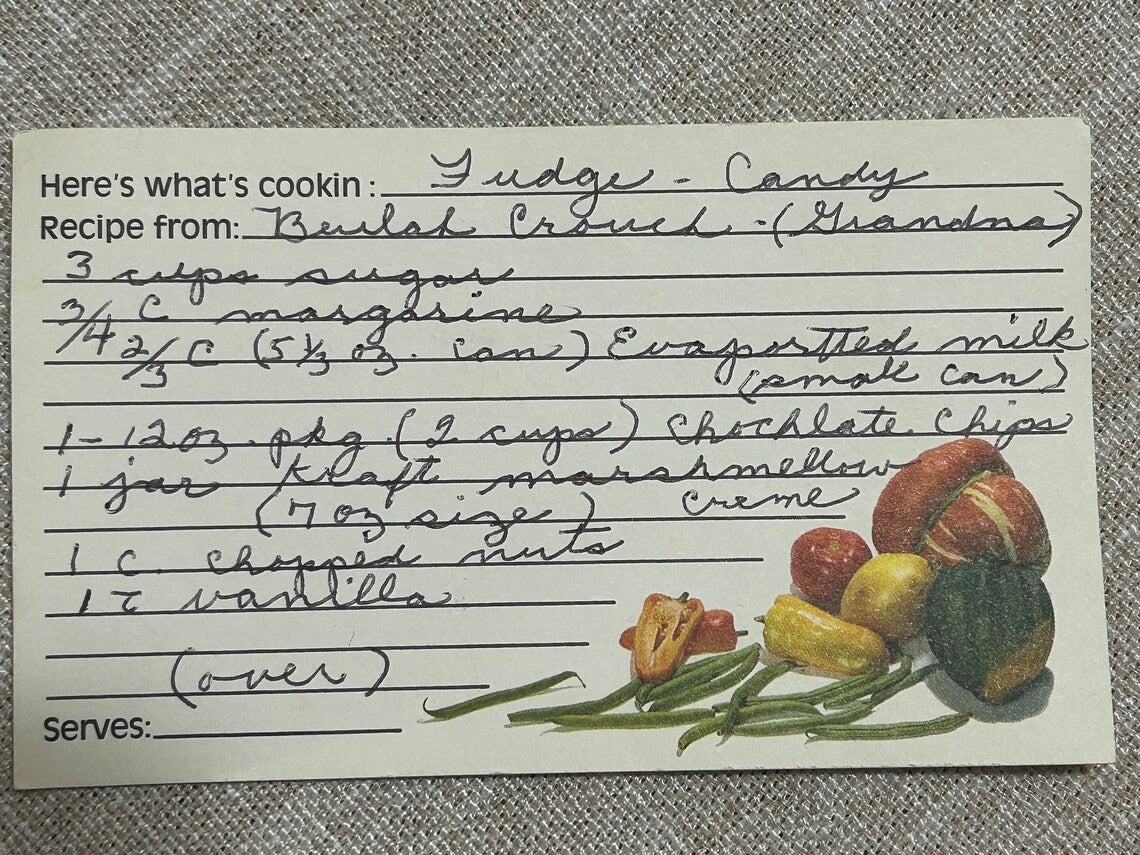 Here's what's cookin : Fudge - Candy
Recipe from: Beulah Crouch - (Grandma)
3 cups sugar
3/4 C margarine
2/3 C (5 1/3 oz. can) Evaportted milk
(small can)
1 - 12 oz. pkg. (2 cups) Chochlate Chips
1 jar Kraft marshmellow
(7 oz size) creme
1 c. chopped nuts
1 t vanilla
(over)
Serves: